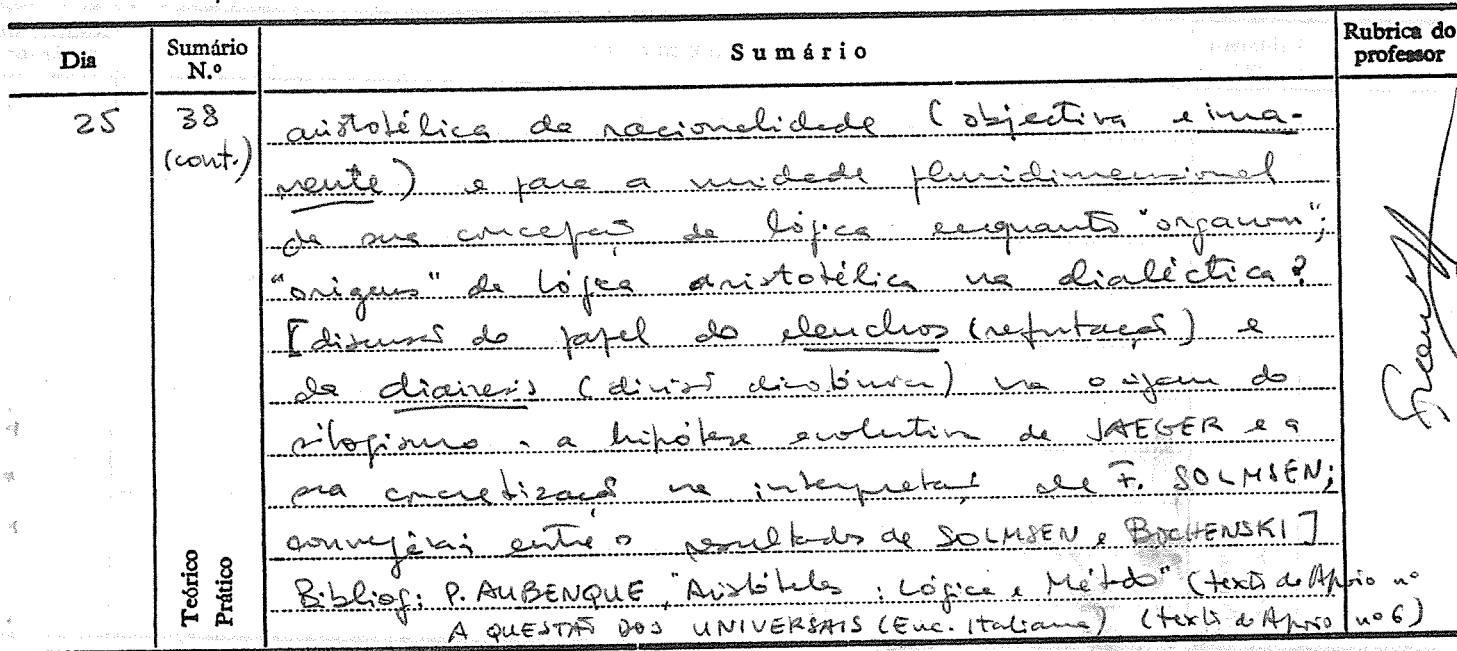 Dia Sumário N.º Sumário Rubrica do professor
25 38 (cont.) aristotélica da racionalidade (objectiva e ima-
nente) e para a unidade pluridimensional
da sua concepção de lógica enquanto "organon";
"origens" da lógica aristotélica na dialéctica?
[discussão do papel do elenchos (refutação) e
da diairesis (divisão dicotómica) na origem do
silogismo. a hipótese evolutiva de JAEGER e a
sua concretização na interpretação de F. SOLMSEN;
convergência entre o resultados de SOLMSEN e BOCHENSKI]
Bibliog: P. AUBENQUE, "Aristóteles: Lógica e Método" (texto de Apoio nº
A QUESTÃO DOS UNIVERSAIS (Enc. Italiana) (texto de Apoio nº 6)
Teórico
Prático